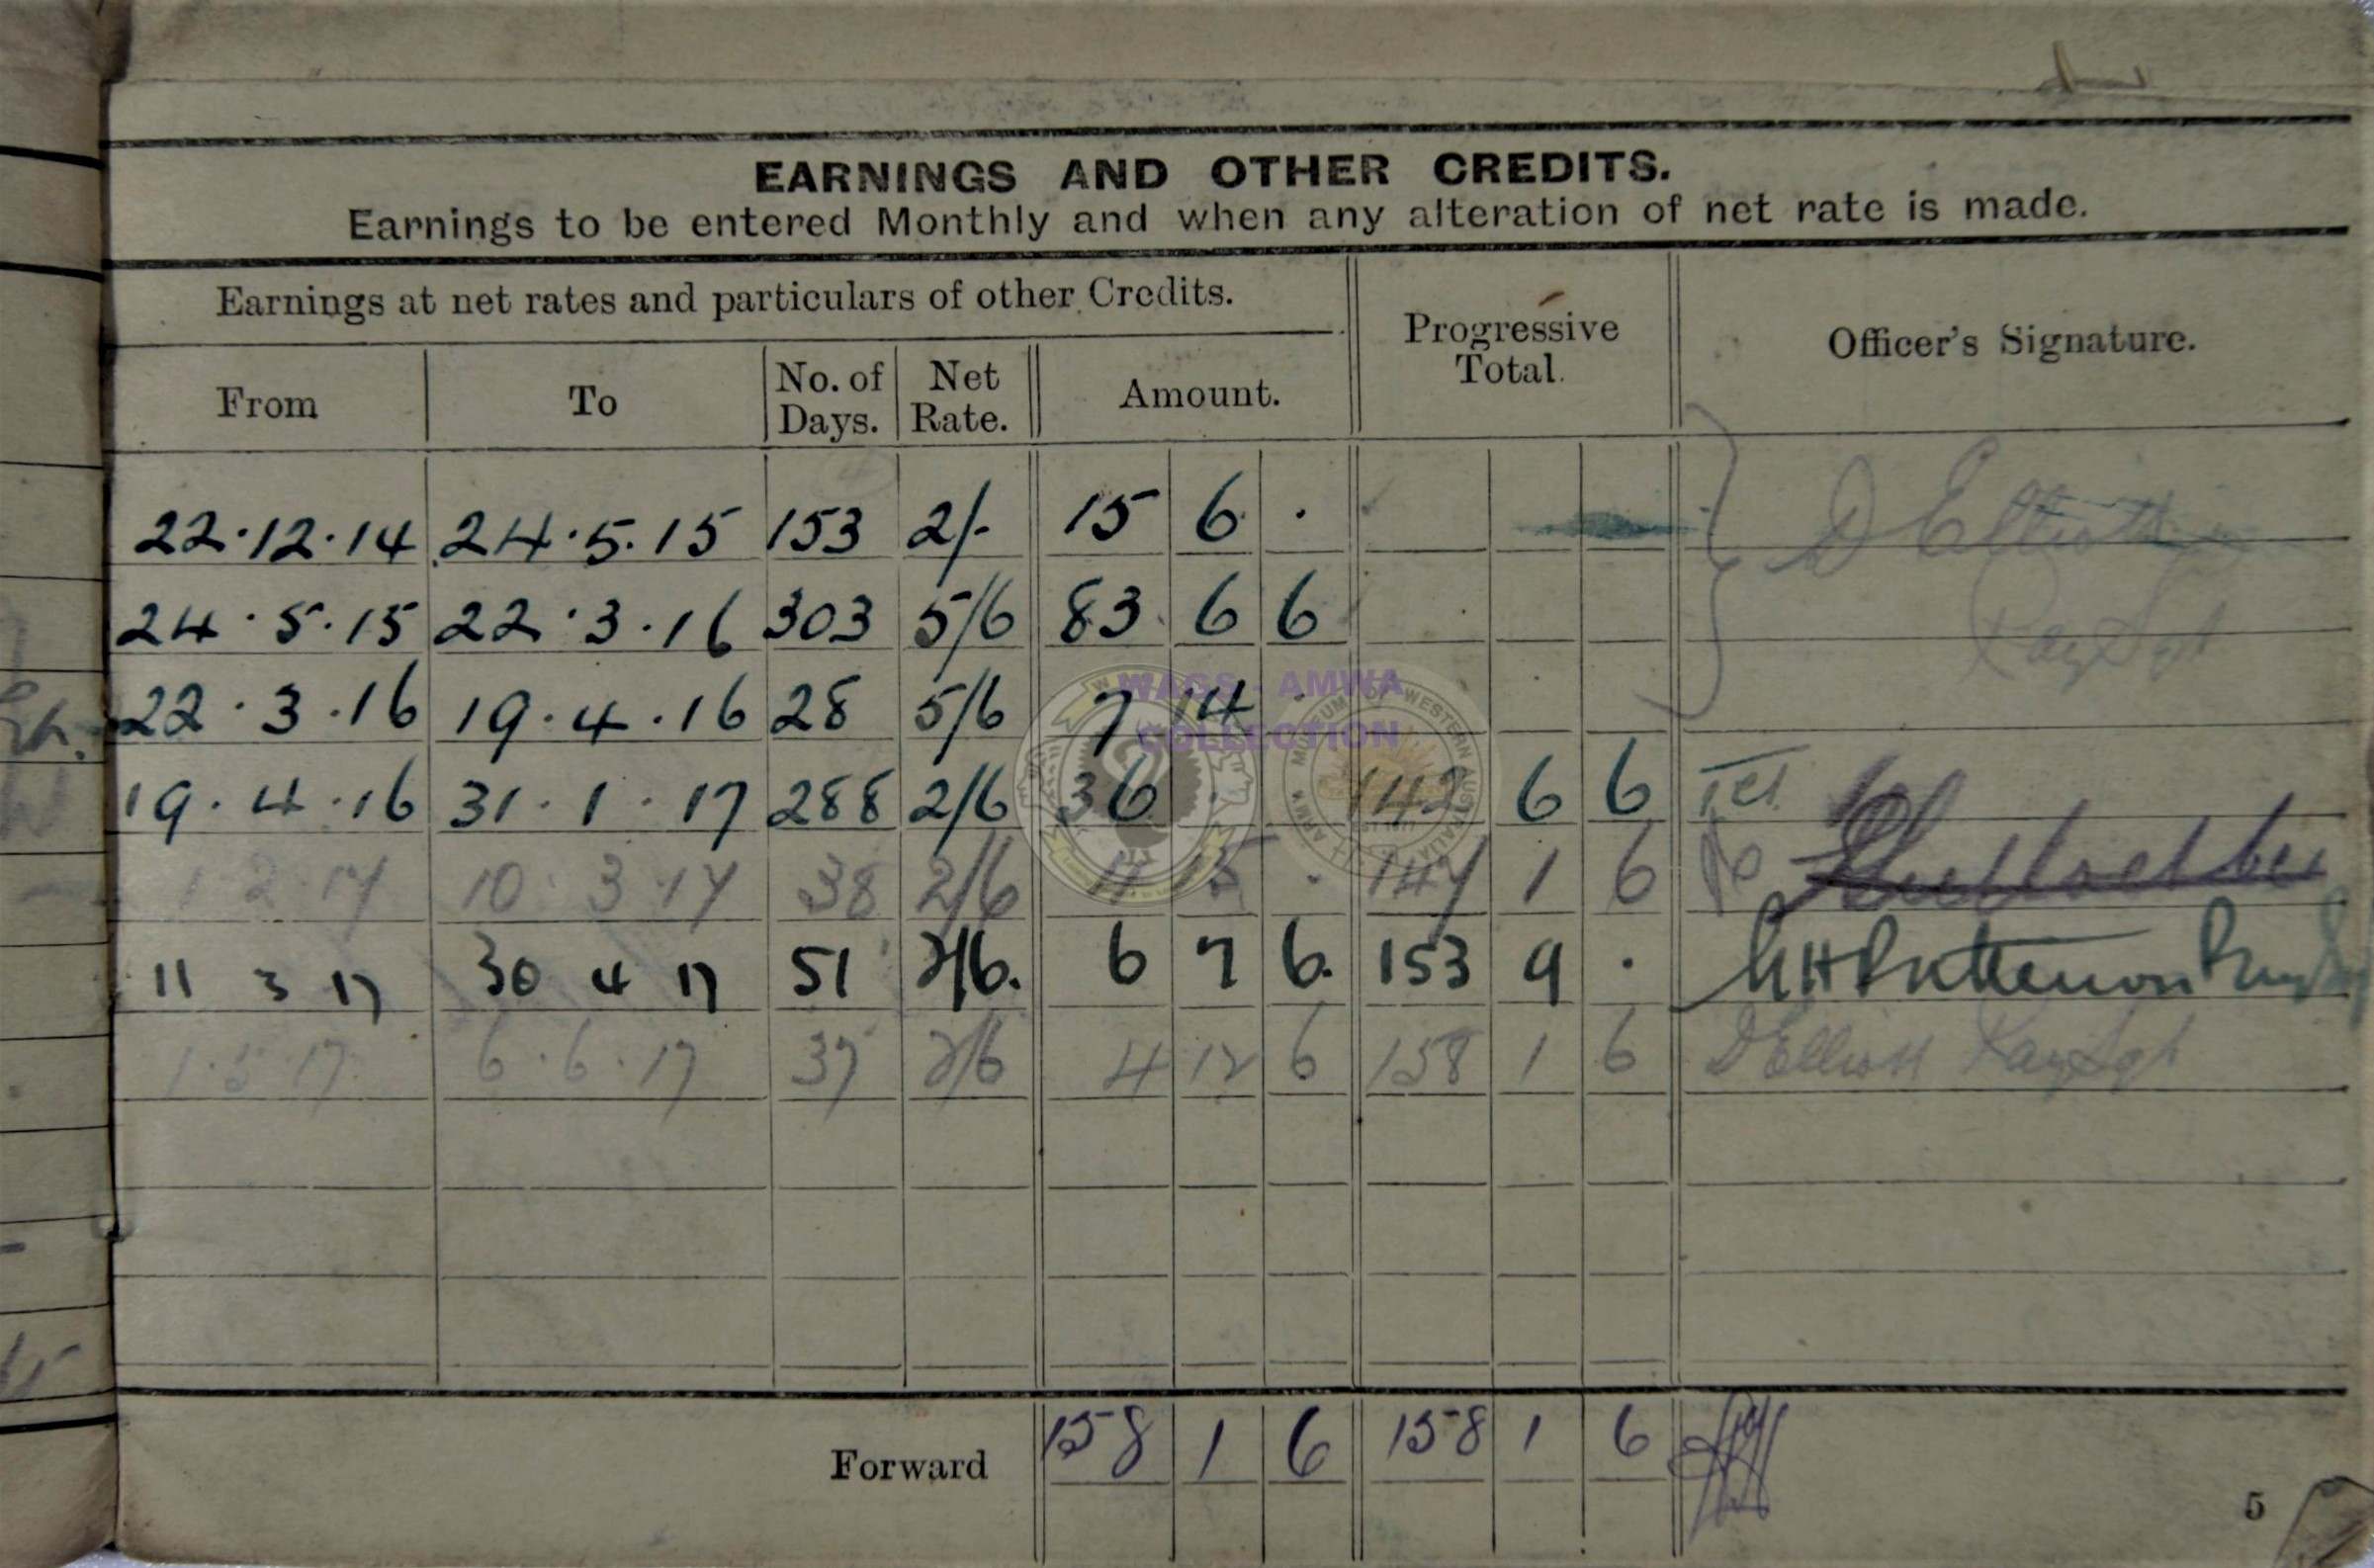 EARNINGS AND OTHER CREDITS.
Earnings to be entered Monthly and when any alteration of net rate is made.
Earnings at net rates and particulars of other Credits.
Progressive Total.
Officer's Signature.
From To No. of Days. Net Rate. Amount.
22.12.14 24.5.15 153 2/- 15 6 . D Elliott
24.5.15 22.3.16 303 5/6 83 6 6 Pay Sgt
22.3.16 19.4.16 28 5/6 7 14 .
WAGS - AMWA
COLLECTION
ARMY MUSEUM OF WESTERN AUSTRALIA
19.4.16 31.1.17 288 2/6 36 . 142 6 6
1.2.17 10.3.17 38 2/6 4 15 . 147 1 6
11 3 17 30 4 17 51 2/6. 6 7 6. 153 9 .
1.5.17 6.6.17 37 2/6 4 12 6 158 1 6 D Elliott Pay Sgt
Forward 158 1 6 158 1 6
5